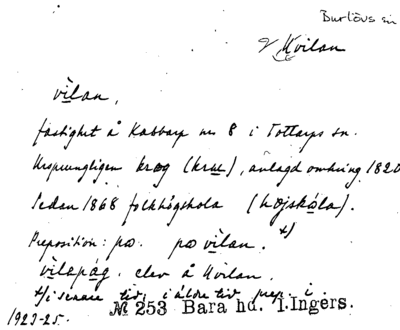 Burlövs sn
Hvilan
vilan,
fastighet å Kabbarp nr 8 i Tottarps sn.
Ursprungligen krog (kru), anlagd omkring 1820
Sedan 1868 folkhögskola (højskåla).
Preposition: på. på vilan. +)
vilapåg. elev å Hvilan.
+) i senare tid, i äldre tid prep. i.
№ 253 Bara hd. I. Ingers.
1923-25.